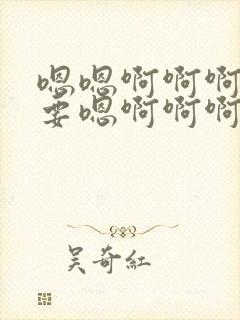 嗯嗯啊啊啊
要嗯啊啊啊
吴奇紅